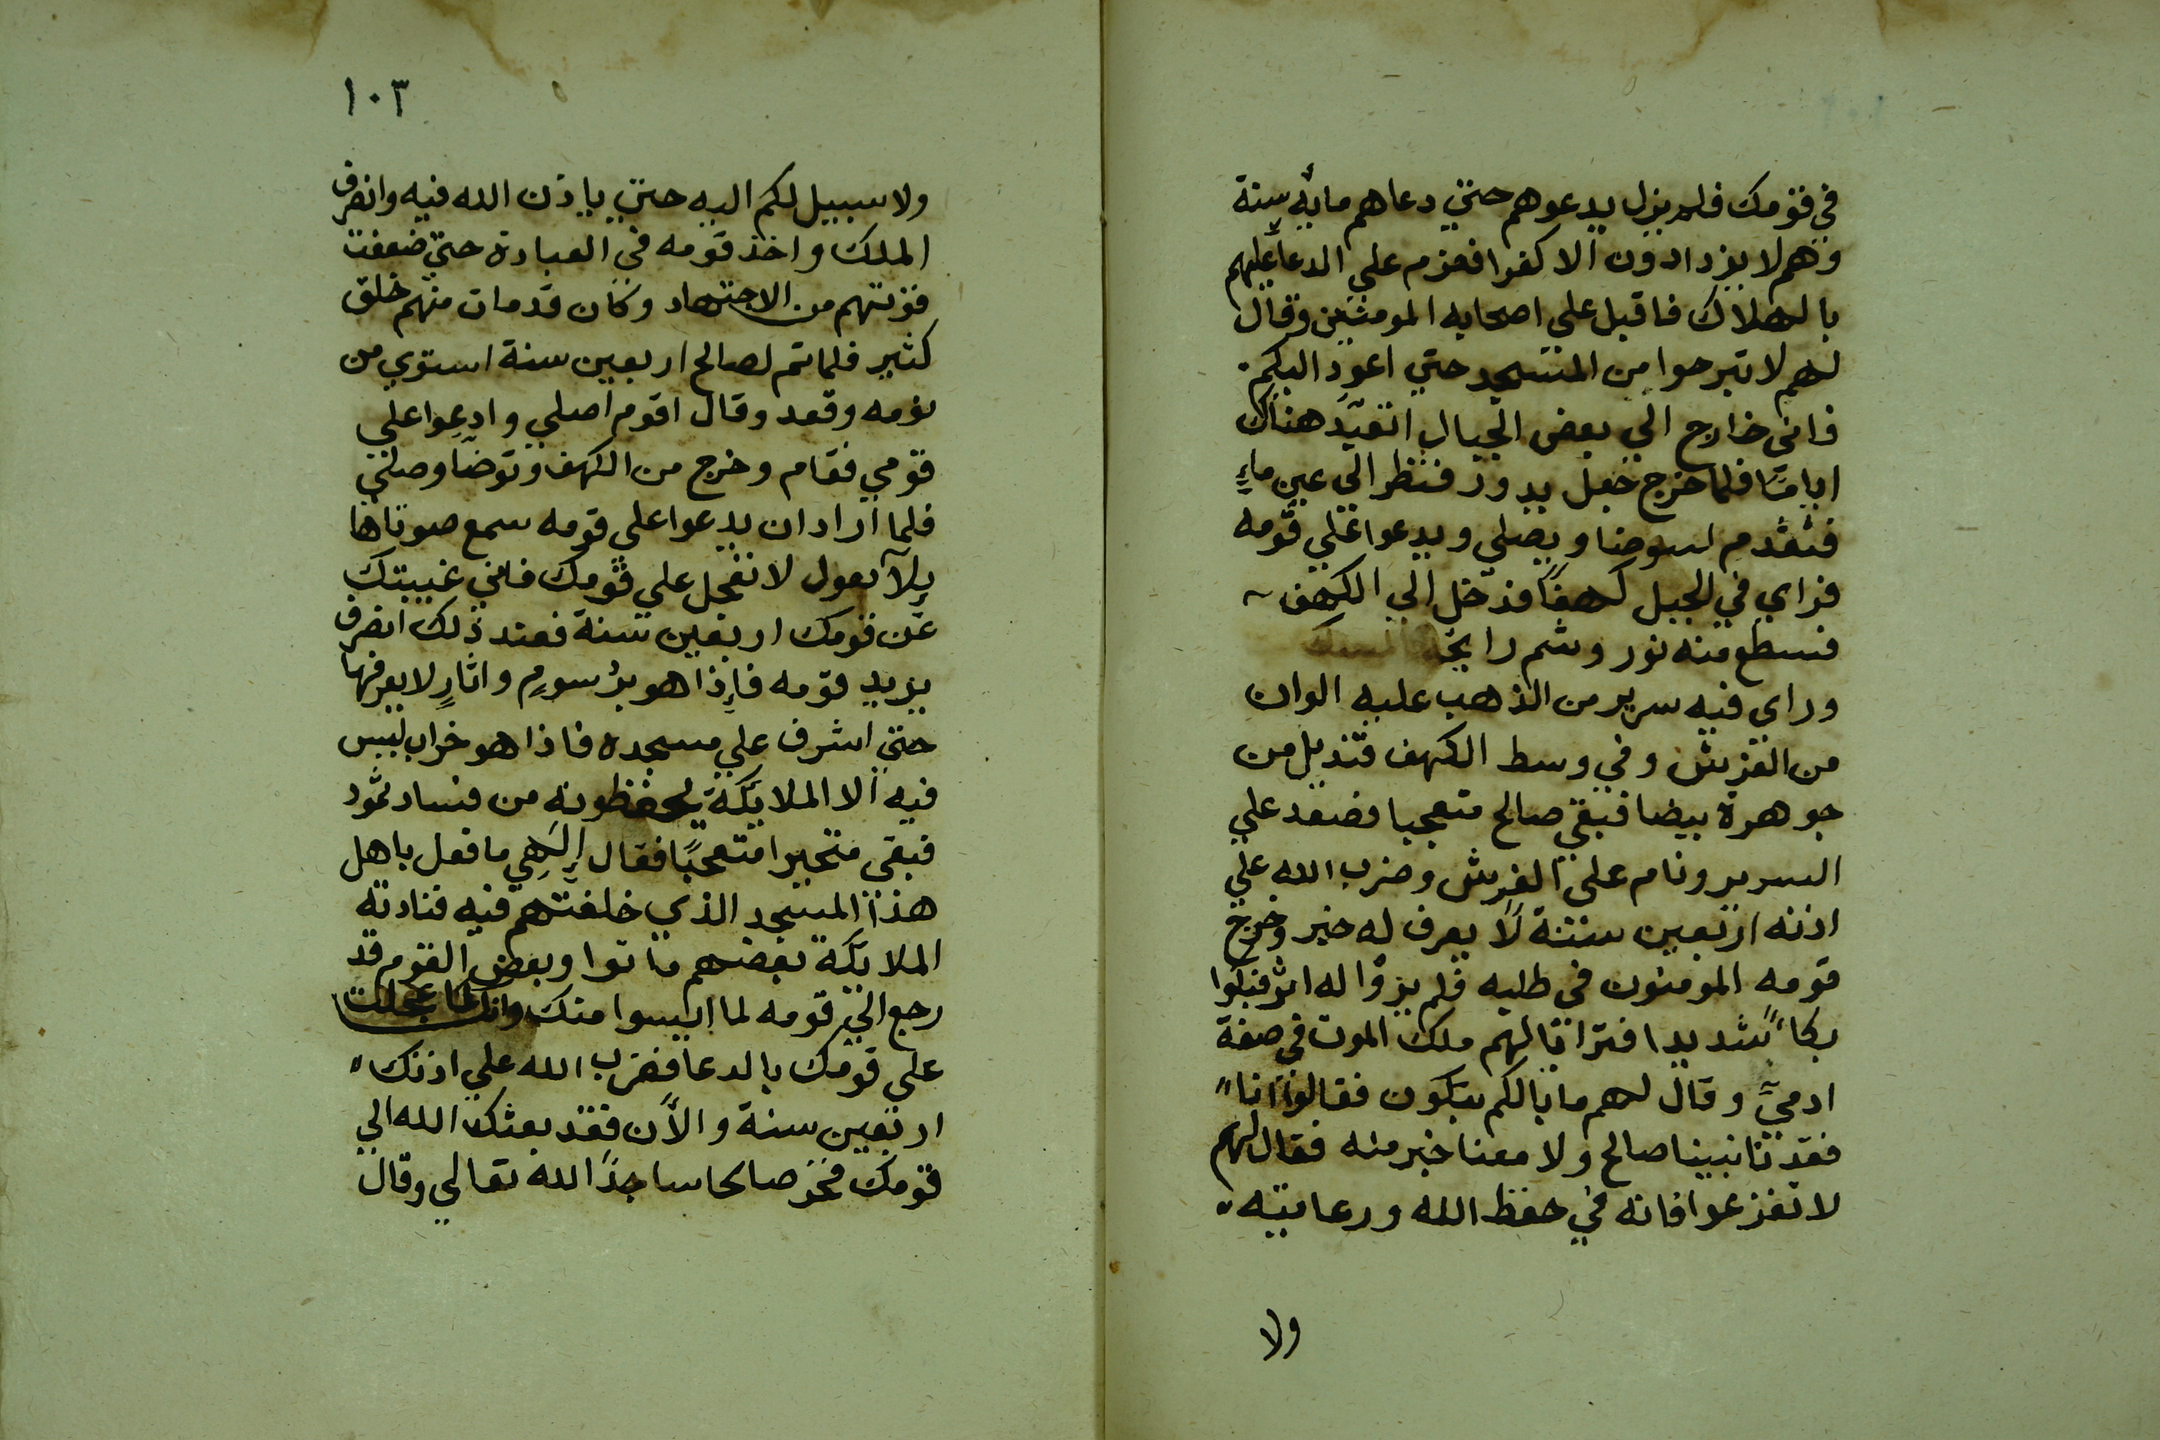 في قومك فلم يزل يدعوهم حتي دعاهم مايه سنة
وهم لا يزدادون الا كفرا فعزم علي الدعا عليهم
بالهلاك فاقبل علي اصحابه المومنين وقال
لهم لا تبرحوا من المسجد حتي اعود اليكم
فاني خارج الي بعض الجبال اتعبد هناك
اياما فلما خرج جعل يدور فنظر الي عين ماءٍ
فتقدم ليتوضا ويصلي ويدعوا علي قومه
فراي في الجبل كهفًا فدخل الي الكهف
فسطع منه نور وشم رايحة المسك
وراي فيه سرير من الذهب عليه الوان
من الفرش وفي وسط الكهف قنديل من
جوهرة بيضا فبقي صالح متعجبا فصعد علي
السرير ونام علي الفرش وضرب الله علي
اذنه اربعين سنة لا يعرف له خبر وخرج
قومه المومنون في طلبه فلم يروا له اثر فبكوا
بكاءً شديدا فتراءا لهم ملك الموت في صفة
ادميّ وقال لهم ما بالكم تبكون فقالوا انا
فقدنا نبينا صالح ولا معنا خبر منه فقال لهم
لا تفزعوا فانه في حفظ الله ورعايته
ولا
١٠٣
ولا سبيل لكم اليه حتي ياذن الله فيه وانصرف
الملك واخذ قومه في العبادة حتي ضعفت
قوتهم من الاجتهاد وكان قد مات منهم خلق
كثير فلما تم لصالح اربعين سنة استوي من
نومه وقعد وقال اقوم اصلي وادعوا علي
قومي فقام وخرج من الكهف وتوضا وصلي
فلما اراد ان يدعوا علي قومه سمع صوتا ها
يِلاً يقول لا تعجل علي قومك فاني غيبتك
عن قومك اربعين سنة فعند ذلك انصرف
يريد قومه فإذا هو برُسومٍ واثارٍ لا يعرفها
حتي اشرف علي مسجده فاذا هو خراب ليس
فيه الا الملايكة يحفظونه من فساد ثمود
فبقي متحيرا متعجبًا فقال إلهي ما فعل باهل
هذا المسجد الذي خلفتهم فيه فنادته
الملايكة بعضهم ماتوا وبعض القوم قد
رجع الي قومه لما ايسوا منك وانك لما عجلت
علي قومك بالدعا فضرب الله علي اذنك
اربعين سنة والأن فقد بعثك الله الي
قومك فخر صالحا ساجدًا لله تعالي وقال